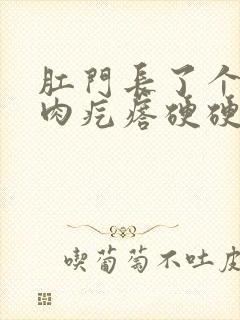 肛門長了个
肉疙瘩硬硬
喫葡萄不吐皮